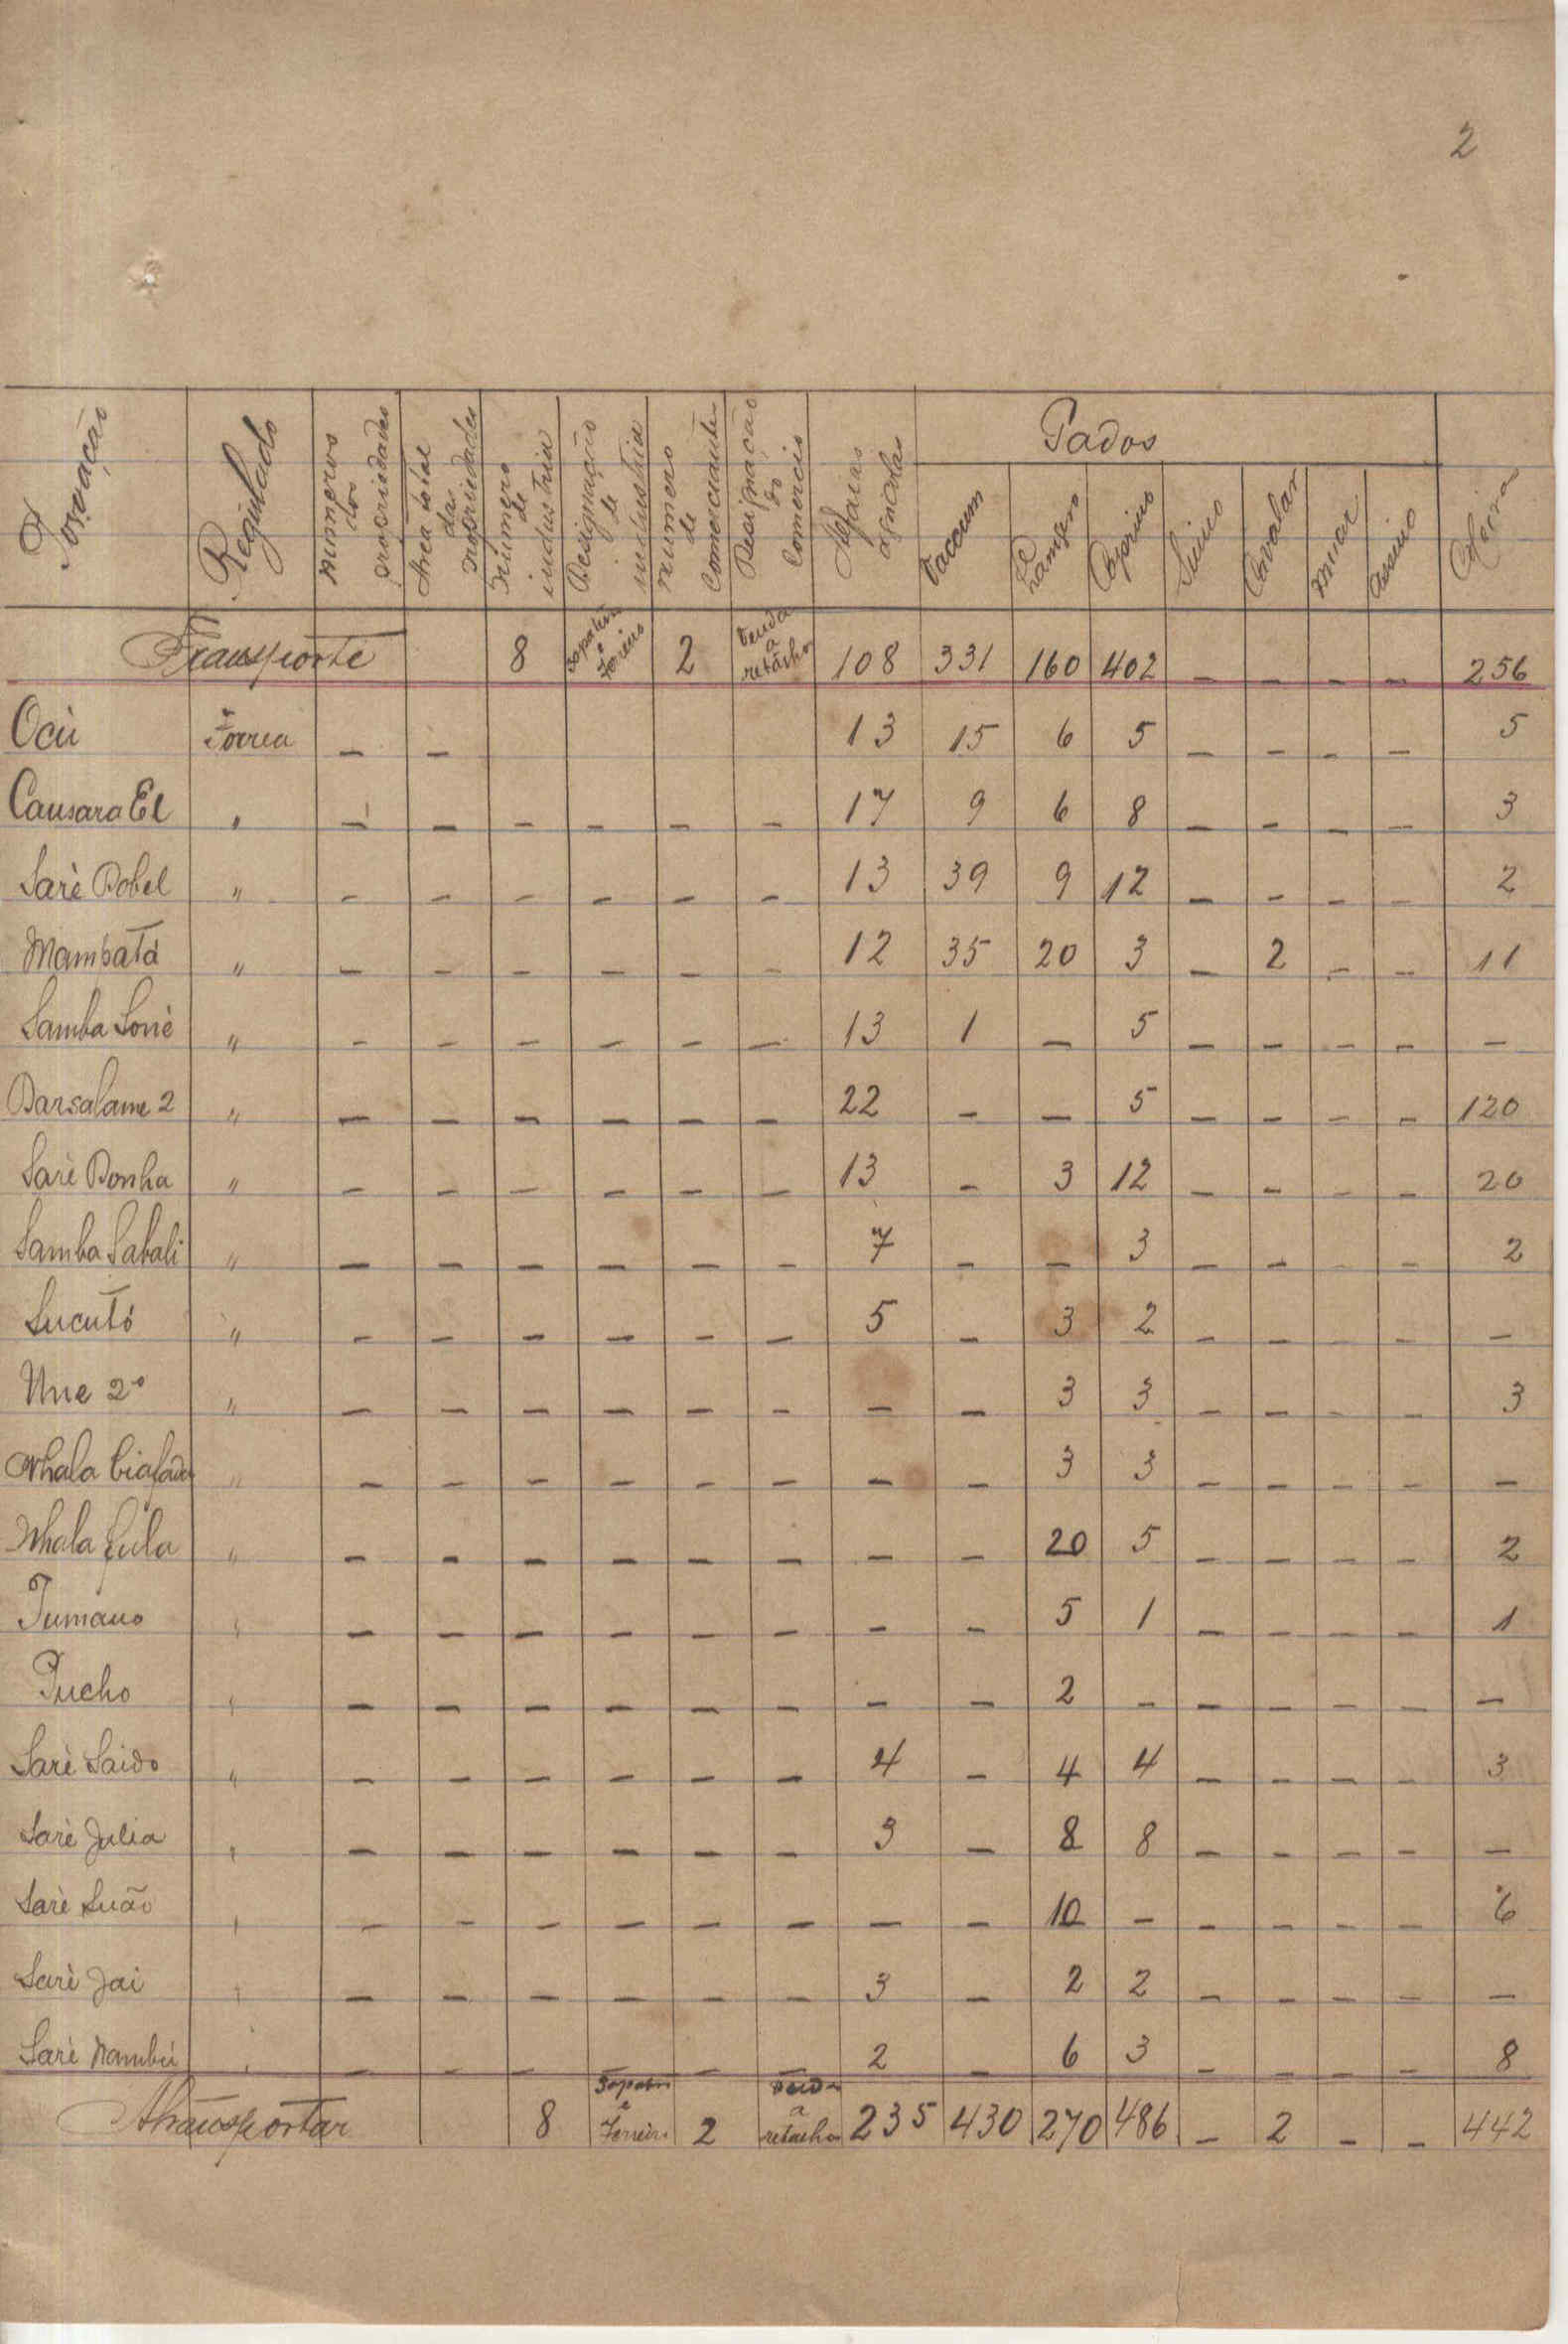 2
Povoação Regulado Números dos propriedades Área total das propriedades Número de industria Designação de industria Número de Comerciante Designação do Comercio Alfaias agricolas Gados
Vaccum Lanigero Caprino Suino Cavalar Muar Asinino
Transporte 8 Sapateiro e Ferreiro 2 Venda a retalho 108 331 160 402 – – – – 256
Ocù Forrea – – 13 15 6 5 – – – – 5
Causara El " – – – – – – 17 9 6 8 – – – – 3
Sarè Dobel " – – – – – – 13 39 9 12 – – – – 2
Mambatá " – – – – – – 12 35 20 3 – 2 – – 11
Samba Sonè " – – – – – – 13 1 – 5 – – – – –
Darsalame 2 " – – – – – – 22 – – 5 – – – – 120
Sarè Donha " – – – – – – 13 – 3 12 – – – – 20
Samba Sabali " – – – – – – 7 – – 3 – – – – 2
Sucutó " – – – – – – 5 – 3 2 – – – – –
Une 2º " – – – – – – – – 3 3 – – – – 3
Nhala Biafada " – – – – – – – – 3 3 – – – – –
Nhala Fula " – – – – – – – – 20 5 – – – – 2
Tumano " – – – – – – – – 5 1 – – – – 1
Tucho " – – – – – – – – 2 – – – – – –
Sarè Saido " – – – – – – 4 – 4 4 – – – – 3
Sarè Julia " – – – – – – 3 – 8 8 – – – – –
Sarè Suão " – – – – – – – – 10 – – – – – 6
Sarè Jai " – – – – – – 3 – 2 2 – – – – –
Sarè Nambú " – – – – – – 2 – 6 3 – – – – 8
A transportar 8 Sapateiro e Ferreiro 2 Venda a retalho 235 430 270 486 – 2 – – 442